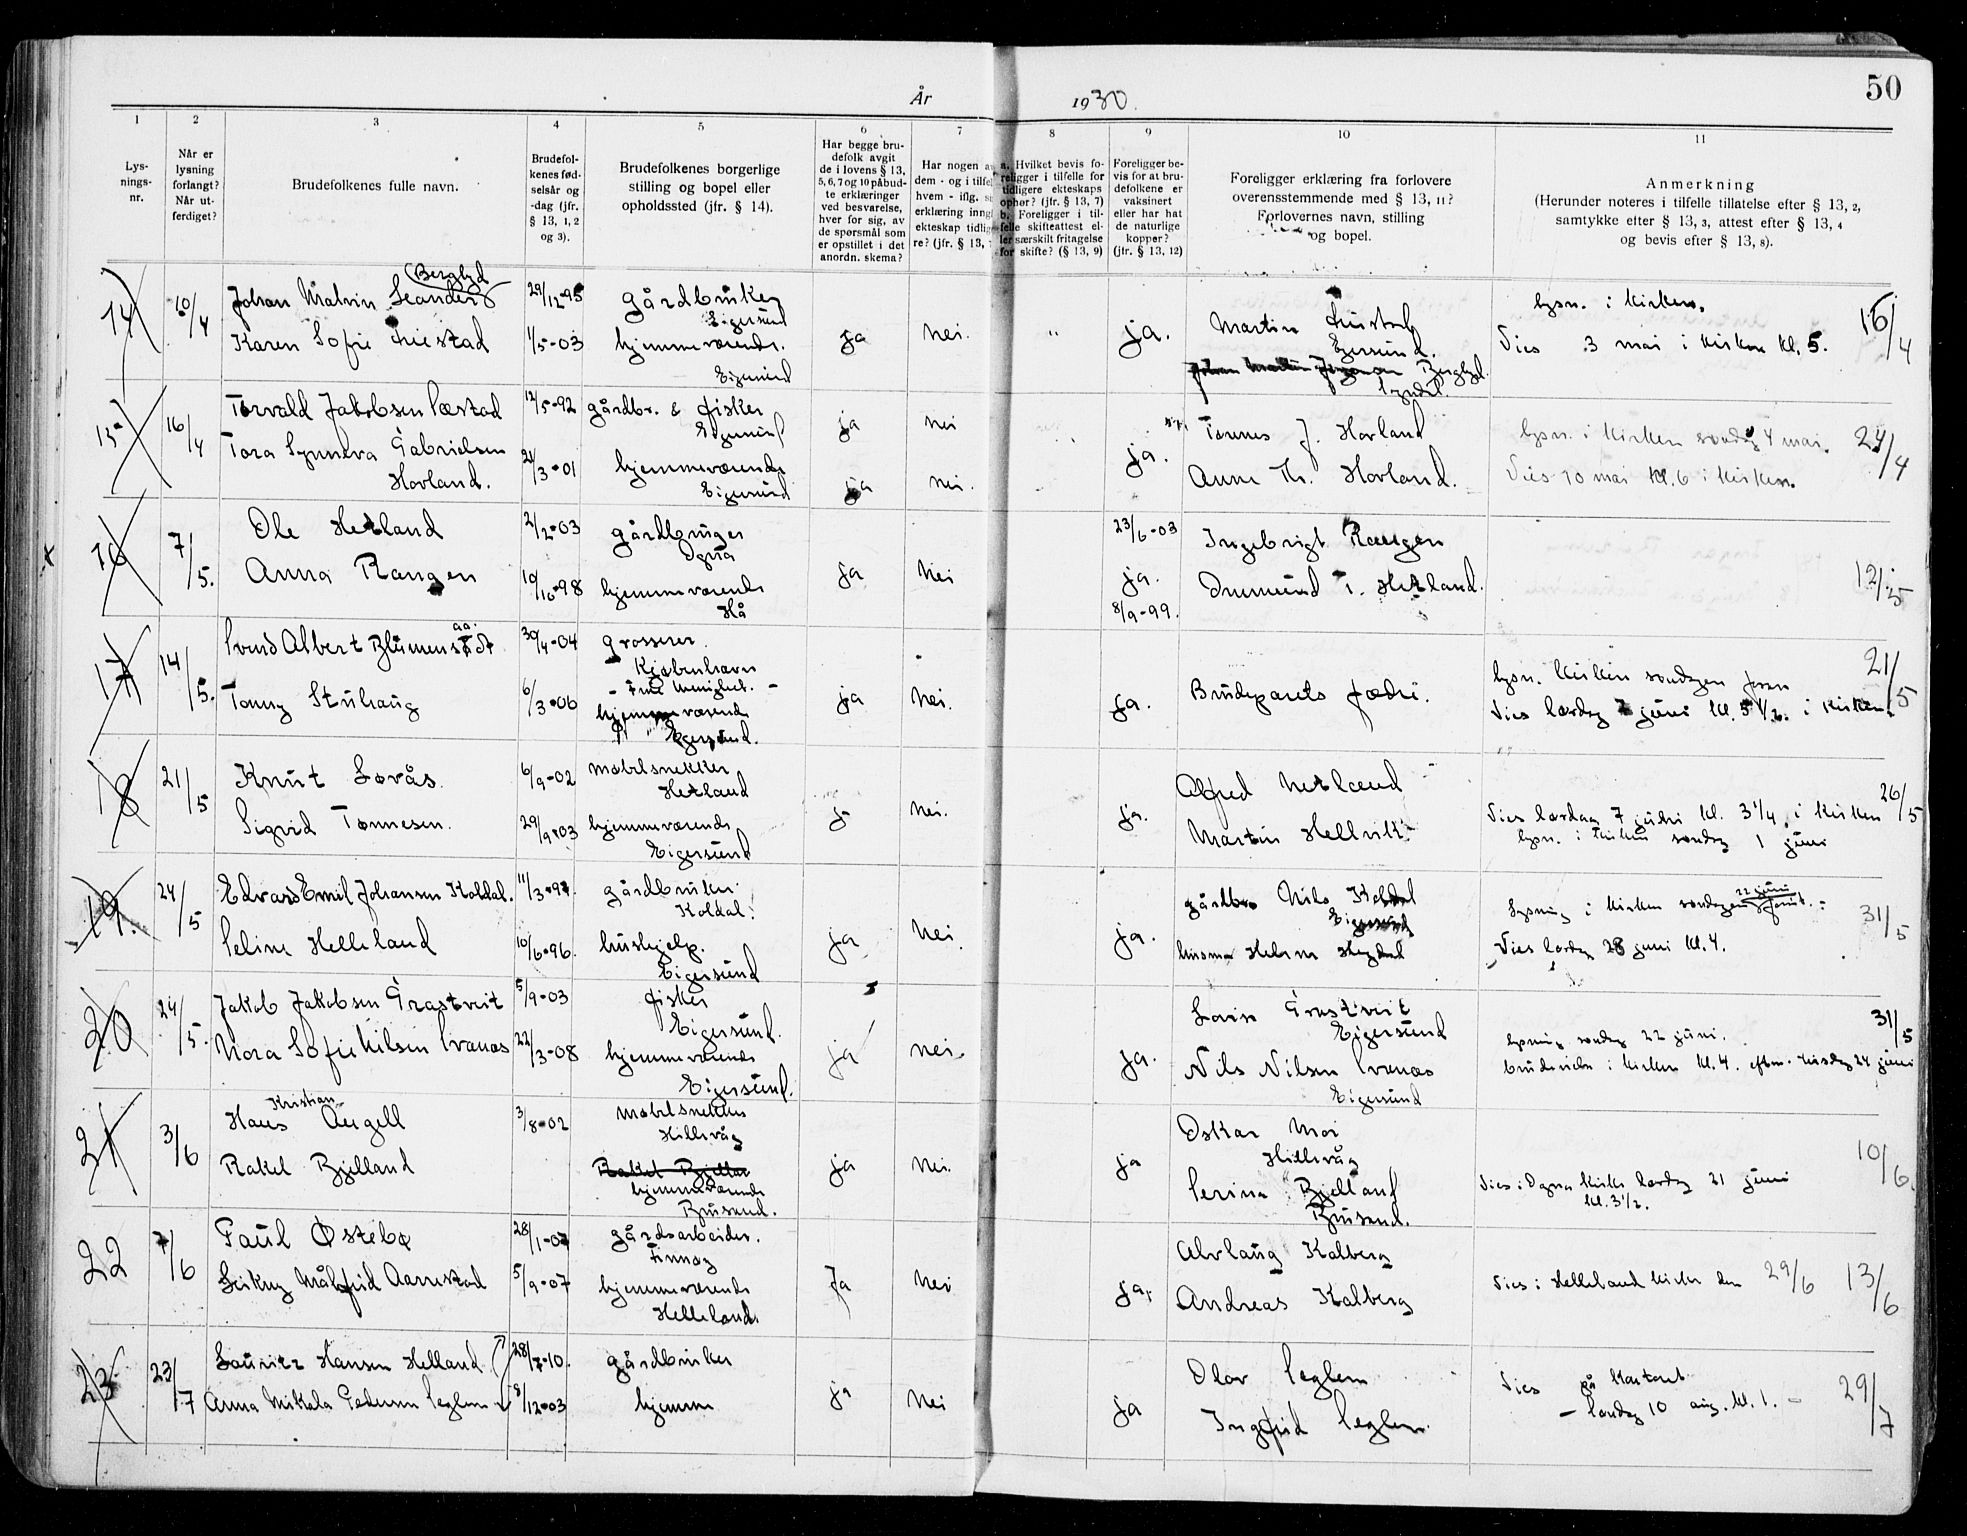 50
År 1930.
1 2 3 4 5 6 7 8 9 10 11
Lysnings-nr.
Når er lysning forlangt? Når utferdiget?
Brudefolkenes fulle navn.
Brudefolkenes fødselsår og -dag (jfr. § 13, 1, 2 og 3).
Brudefolkenes borgerlige stilling og bopel eller opholdssted (jfr. § 14).
Har begge brudefolk avgit de i lovens § 13, 5, 6, 7 og 10 påbudte erklæringer ved besvarelse, hver for sig, av de spørsmål som er opstillet i det anordn. skema?
Har nogen a
dem - og i tilfel
hvem - iflg. s
erklæring inng
ekteskap tidlig
re? (jfr. § 13,
a. Hvilket bevis foreligger i tilfelle for tidligere ekteskaps ophør? (jfr. § 13, 7)
b. Foreligger i tilfelle skifteattest eller særskilt fritagelse for skifte? (§ 13, 9)
Foreligger bevis for at brudefolkene er vaksinert eller har hat de naturlige kopper? (jfr. § 13, 12)
Foreligger erklæring fra forlovere overensstemmende med § 13, 11? Forlovernes navn, stilling og bopel.
Anmerkning
(Herunder noteres i tilfelle tillatelse efter § 13, 2, samtykke efter § 13, 3, attest efter § 13, 4 og bevis efter § 13, 8).
14 10/4 Johan Malvin Leander (Berglyd 29/12-95 gårdbruker Eigersund
Karen Sofie 1/5-03 hjemmeværende. Eigersund ja nei. " ja.
Martin Egersund.
Berglyd.
lysn. i kirken.
Vies 3 mai i kirken kl. 5. 16/4
15 16/4 Torvald Jakobsen 12/5-92 gårdbr. & fisker Eigersund ja nei
Tora Synnøva Gabrielsen Hovland. 21/3-01 hjemmeværende Eigersund ja nei. ja.
Tønnes J. Hovland
Anne Th. Hovland.
lysn. i kirken søndag 4 mai.
Vies 10 mai kl. 6 i kirken. 24/4
16 7/5. Ole Hetland 2/2-03 gårdbruger Ogna
Anna Raugen 10/10-98 hjemmeværende Hå ja nei
23/6-03 ja. 8/9-99.
Ingebrigt Raugen
Hetland. 12/5
17 14/5. Svend Albert 30/4-04 grosserer. Kjøbenhavn
Tonny Stuhaug 6/3-06 hjemmeværende Egersund. ja nei. ja.
Brudeparets fædre.
lysn. kirken søndagen foran
Vies lørdag 7 juni kl. 5 1/2. i kirken. 21/5
18 21/5 Knut Sørås. 6/9-02 møbelsnekker Hetland
Sigrid Tønnesen. 29/9-03 hjemmeværende Eigersund ja nei. ja.
Alfred Hetland
Martin Hellvik
Vies lørdag 7 juni kl. 3 1/4, i kirken 26/5
lysn. i kirken søndag 1 juni
19. 24/5 Edvard Emil Johansen Koldal. 11/3-97 gårdbruker Koldal.
Seline Helleland 10/6-96. hushjelp. Eigersund ja nei. ja.
gårdbr. Nils Koldal Eigersund
Lysning i kirken søndagen 22 juni
Vies lørdag 28 juni kl. 4. 31/5
20 24/5. Jakob Jakobsen Grastveit 5/9-03 fisker Eigersund.
Nora Sofie Nilsen Svanes 22/3-08 hjemmeværende Eigersund. ja nei. ja.
Grastveit Eigersund
Nils Nilsen Svanes Eigersund
lysning søndag 22 juni.
brudevielse i kirken kl. 4. eftm. tirsdag 24 juni 31/5
21 3/6 Hans Kristian Angell 3/8-02 møbelsnekker Hillevåg
Rakel Bjelland Rakel Bjelland hjemmeværende Brusand. ja nei. ja
Oskar Moi Hillevåg
Serina Bjelland Brusand.
Vies i Ogna kirke lørdag 21 juni kl. 3 1/2. 10/6.
22 7/6 Paul Østebø 28/1-07 gårdsarbeider. Finnøy
Målfrid Aarrestad 5/9-07 hjemmeværende Helleland. Ja nei ja,
Alvlaug Kalberg
Andreas Kalberg
Vies i Helleland kirke den 29/6 13/6
23 23/7 Lauritz Hansen Helland 28/7-10. gårdbruker
Anna Mikala Pedersen Seglem 8/12-03 hjemme ja nei ja
Olav Seglem
Ingfrid Seglem.
Vies på kontoret
- lørdag 10 aug. kl. 1. - 29/7